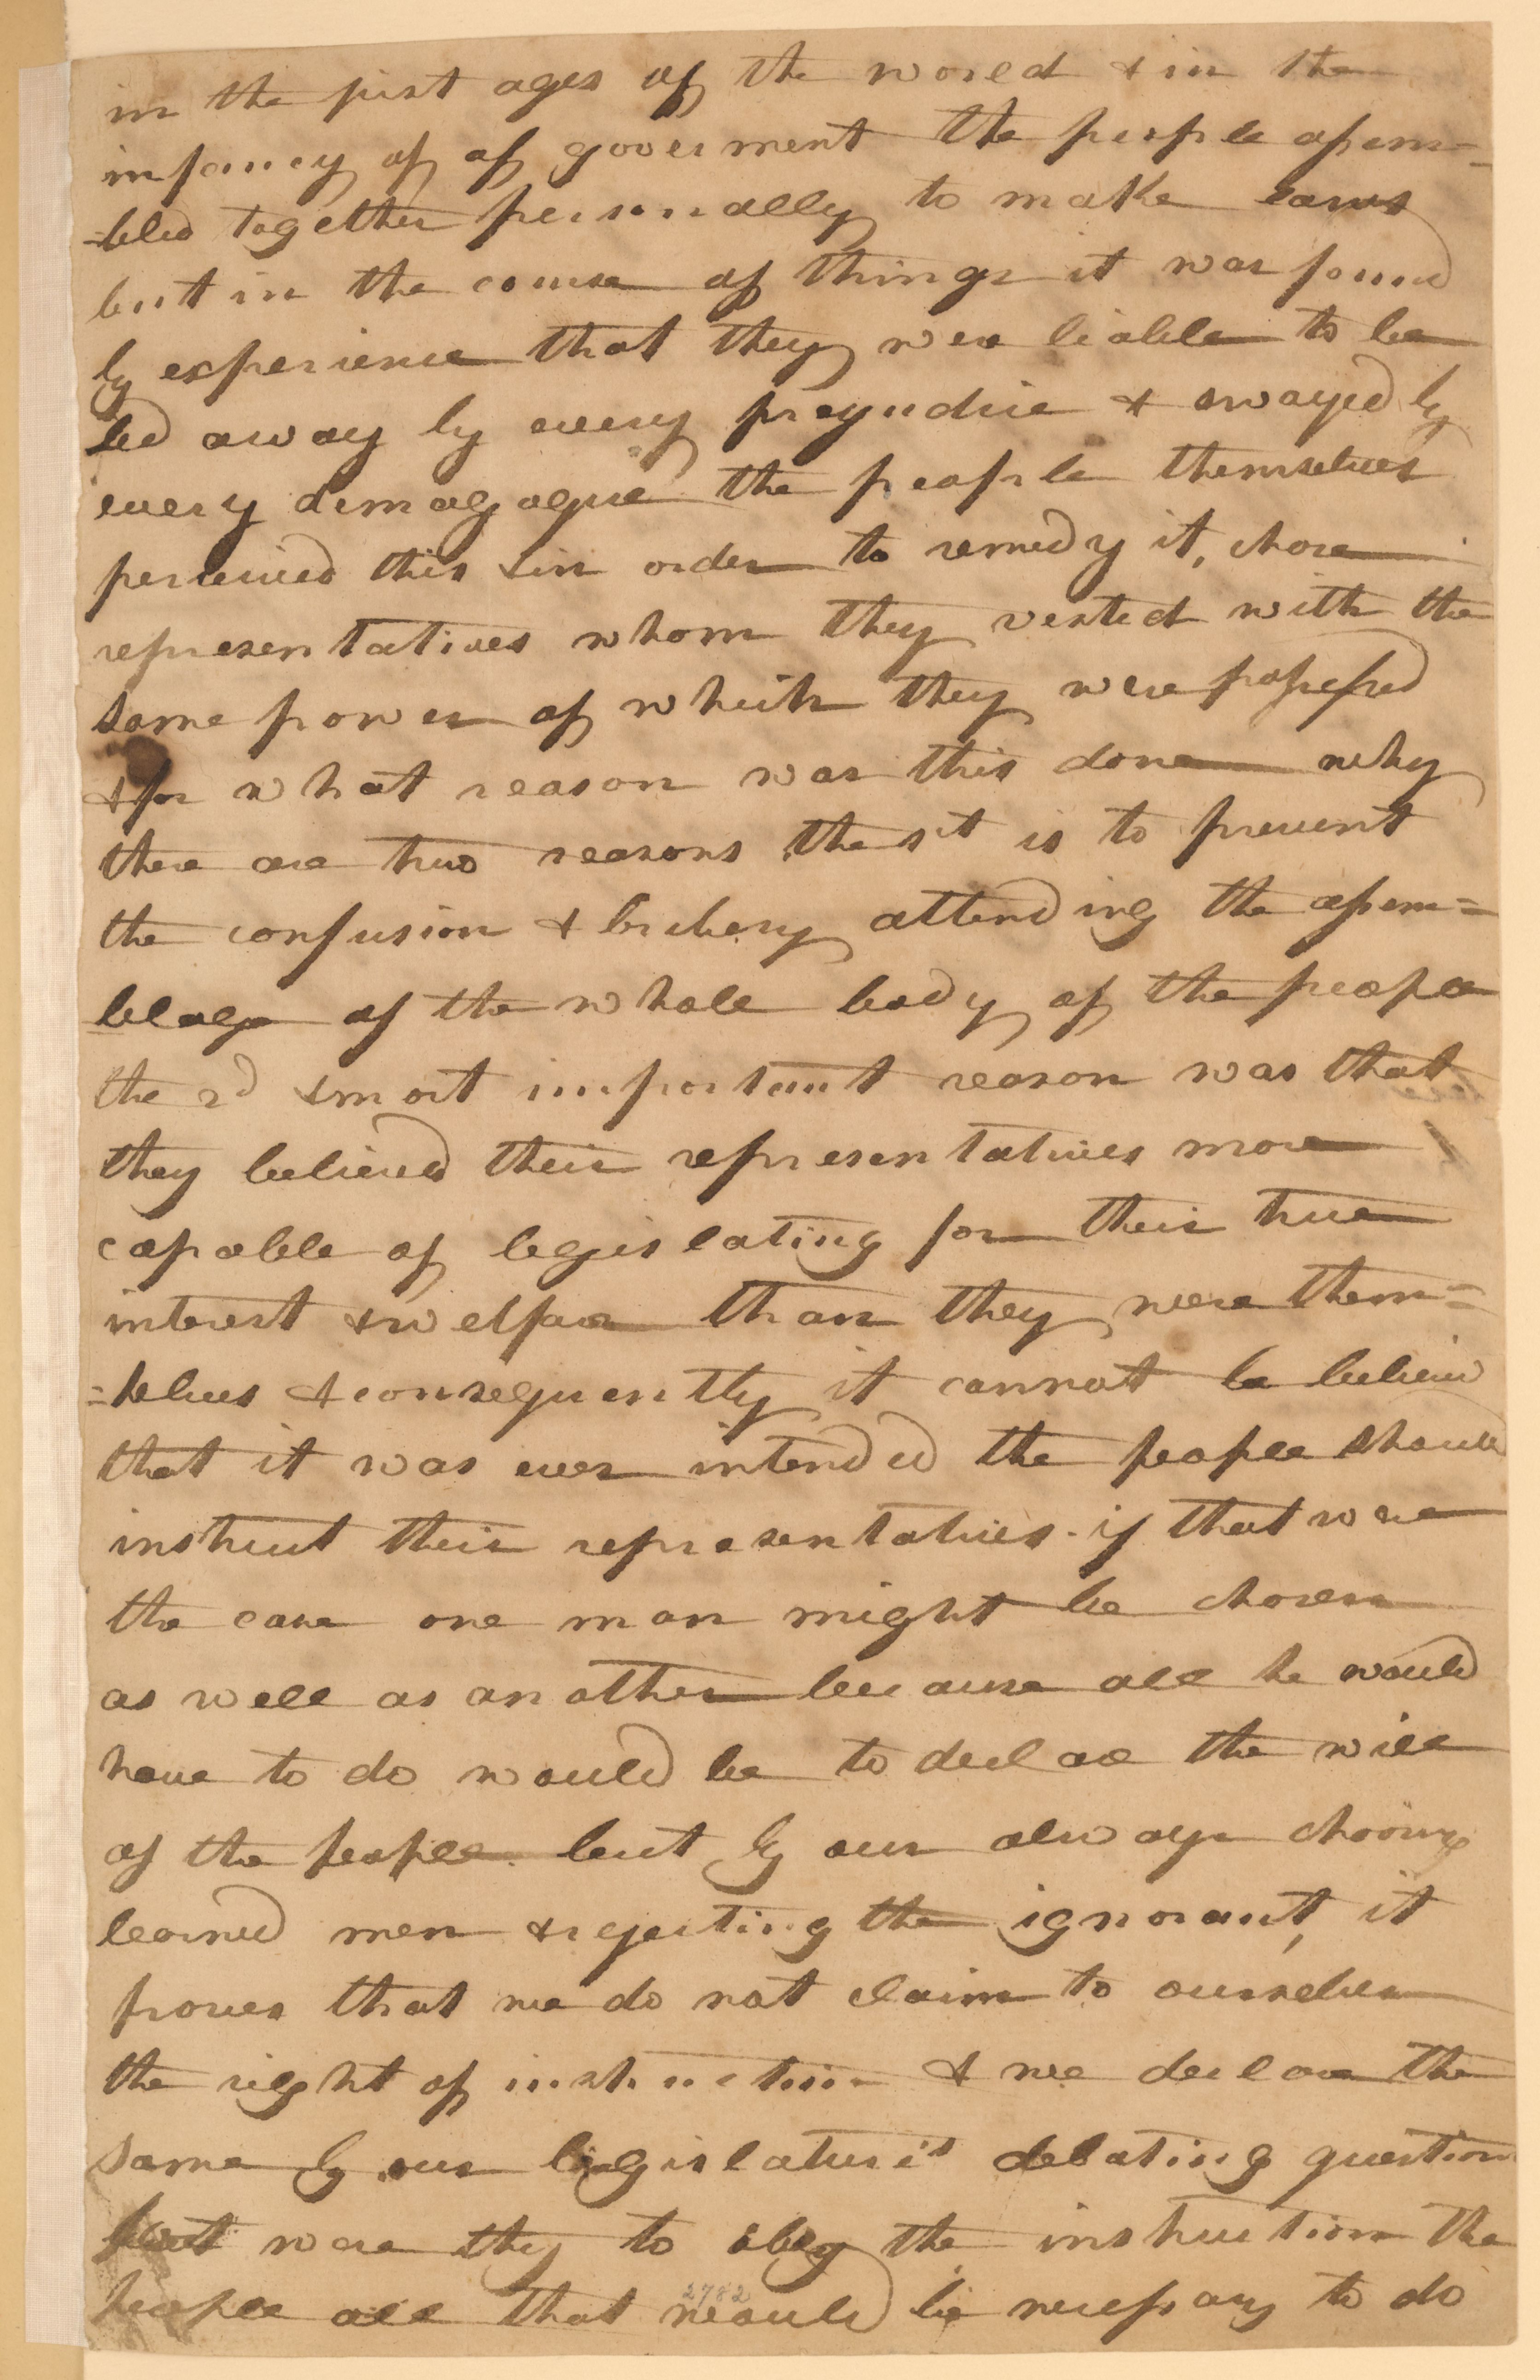 in the first ages of the world & in the
infancy of of goverment the people assem=
=bled together personally to make laws
but in the course of things it was found
by experience that they were liable to be
led away by every prejudice & swayed by
every demagogue the people themselves
perceived this & in order to remedy it, chose
representatives whom they vested with the
same power of which they were possessed
& for what reason was this done why
there are two reasons the 1st is to prevent
the confusion & bribery attending the assem=
blage of the whole body of the people
the 2d & most important reason was that
they believed their representatives more
capable of legislating for their true
interest & welfare than they were them=
=selves & consequently it cannot be believd
that it was ever intended the people should
instruct their representatives. if that were
the case one man might be chosen
as well as another because all he would
have to do would be to declare the will
of the people but by our always choosing
learned men & rejecting the ignorant, it
proves that we do not claim to ourselves
the right of instruction & we declare the
same by our legislature's debating question
but were they to obey the instruction the
people all that would be necessary to do
2782